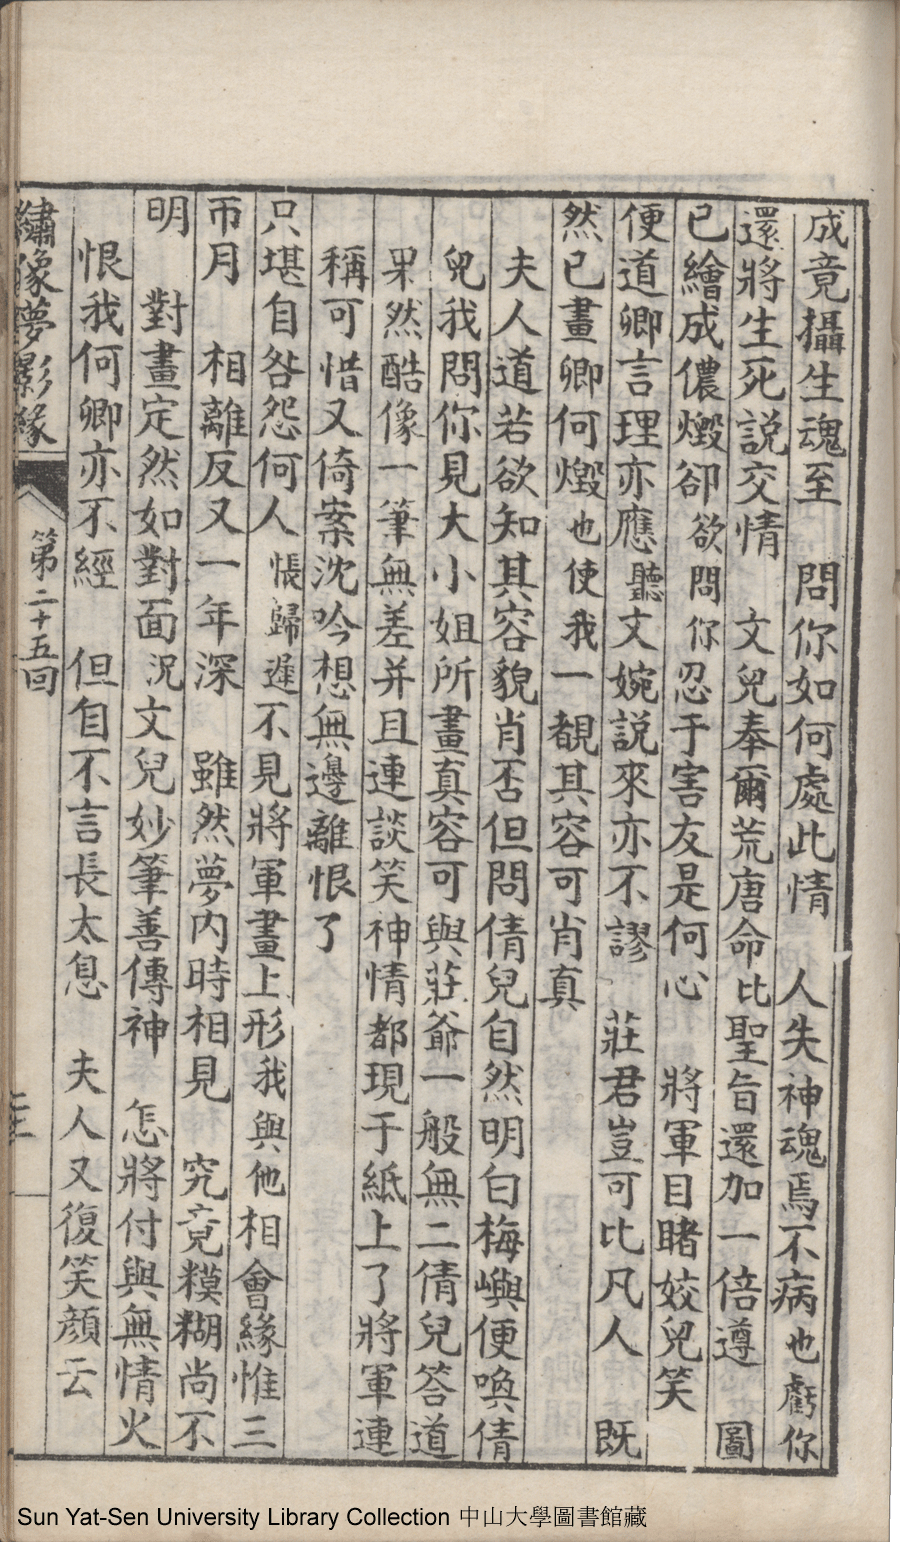 成竟攝生魂至　問你如何處此情　人失神魂焉不病也虧你
還將生死說交情　文兒奉爾荒唐命比聖旨還加一倍遵　圖
已繪成儂燬卻欲問你忍于害友是何心　將軍目睹姣兒笑
便道卿言理亦應聽文婉說來亦不謬　莊君豈可比凡人　既
然已畫卿何燬也使我一覩其容可肖真
夫人道若欲知其容貌肖否但問倩兒自然明白梅嶼便喚倩
兒我問你見大小姐所畫真容可與莊爺一般無二倩兒答道
果然酷像一筆無差并且連談笑神情都現于紙上了將軍連
稱可惜又倚案沈吟想無邊離恨了
只堪自咎怨何人悵歸遲不見將軍畫上形我與他相會緣惟三
帀月　相離反又一年深　雖然夢內時相見　究竟糢糊尚不
明　對畫定然如對面況文兒妙筆善傳神　怎將付與無情火
恨我何卿亦不經　但自不言長太息　夫人又復笑顏云
繡像夢影緣　第二十五回
Sun Yat-Sen University Library Collection 中山大學圖書館藏